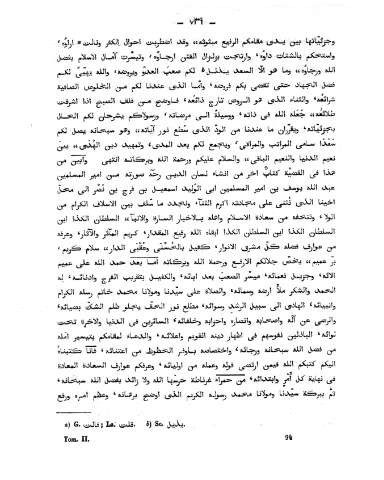 — ٧٣٩ —
وجزئياتها بين يدى مقامكم الرفيع مبثوثة، وقد اضطربت احوال الكفر وفالت a اراؤه،
واستحكم بالشتات داؤه، وارتجت بزلزال الفتن ارجاؤه، وتيسرت آمال الاسلام بفضل
الله ورجاؤه، وما هو الّا السعد يذلل b لكم صعب العدو ويروضه، والله يهيّئ لكم
فضل الجهاد حتى تقضى بكم فروضه، وامّا الذى عندنا لكم من الخلوص الصافية
شرائعه، والثناء الذى هو الروض تارج ذائعه، فاوضح من فلق الصبح اذا اشرقت
طلائعه، جعله الله فى ذاته، ووسيلة الى مرضاته، ورسولاكم يشرحان لكم الحال
بجزئياته، ويقرران ما عندنا من الودّ الذى سطع نور آياته، وهو سبحانه يصل لكم
سعدا سامى المراتب والمراقى، ويجمع لكم بعد المدى وتمهيد دين الهدى، بين
نعيم الدنيا والنعيم الباقى، والسلام عليكم ورحمة الله وبركاته انتهى وابين من
هذا فى القضية كتاب آخر من انشاء لسان الدين رحه صورته من امير المسلمين
عبد الله يوسف بن امير المسلمين ابى الوليد اسمعيل بن فرج بن نصر الى محلّ
اخينا الذى نثنى على مجادته اكرم الثناء، ونجدد ما سلف بين الاسلاف الكرام من
الولاء، ونتحفه من سعادة الاسلام واهله بالاخبار السارة والانباء، السلطان الكذا ابن
السلطان الكذا ابن السلطان الكذا ابقاه الله رفيع المقدار، كريم المآثر والآثار، وعرفه
من عوارف فضله كلّ مشرق الانوار، كفيل بالحسنى وعقبى الدار، سلام كريم،
برّ عميم، يخصّ جلالكم الارفع ورحمة الله وبركاته امّا بعد حمد الله على عميم
الائه، وجزيل نعمائه، ميسّر الصعب بعد ابائه، والكفيل بتقريب الفرج وادنائه، له
الحمد والشكر ملأ ارضه وسمائه، والصلاة على سيّدنا ومولانا محمد خاتم رسله الكرام
وانبيائه، الهادى الى سبيل الرشد وسوائه، مطلع نور الحق يجلو ظلم الشك بضيائه،
والرضى عن آله واصحابه وانصاره واحزابه وخلفائه، السائرين فى الدنيا والاخرة تحت
لوائه، الباذلين نفوسهم فى اظهار دينه القويم واعلائه، والدعاء لمقامكم بتيسير امله
من فضل الله سبحانه ورجائه، واختصاصه باوفر الحظوظ من اعتنائه، فانّا كتبناه
اليكم كتبكم الله فيمن ارتضى قوله وعمله من اوليائه، وعرفكم عوارف السعادة المعادة
فى نهاية كل امر وابتدائه، من حمراء غرناطة حرسها الله ولا زائد بفضل الله سبحانه،
ثم ببركة سيّدنا ومولانا محمد رسوله الكريم الذى اوضح برهانه، وعظم امره ورفع
a) G. فالت; Ls. قلت. b) Sc. يذليل.
Tom. II. 94